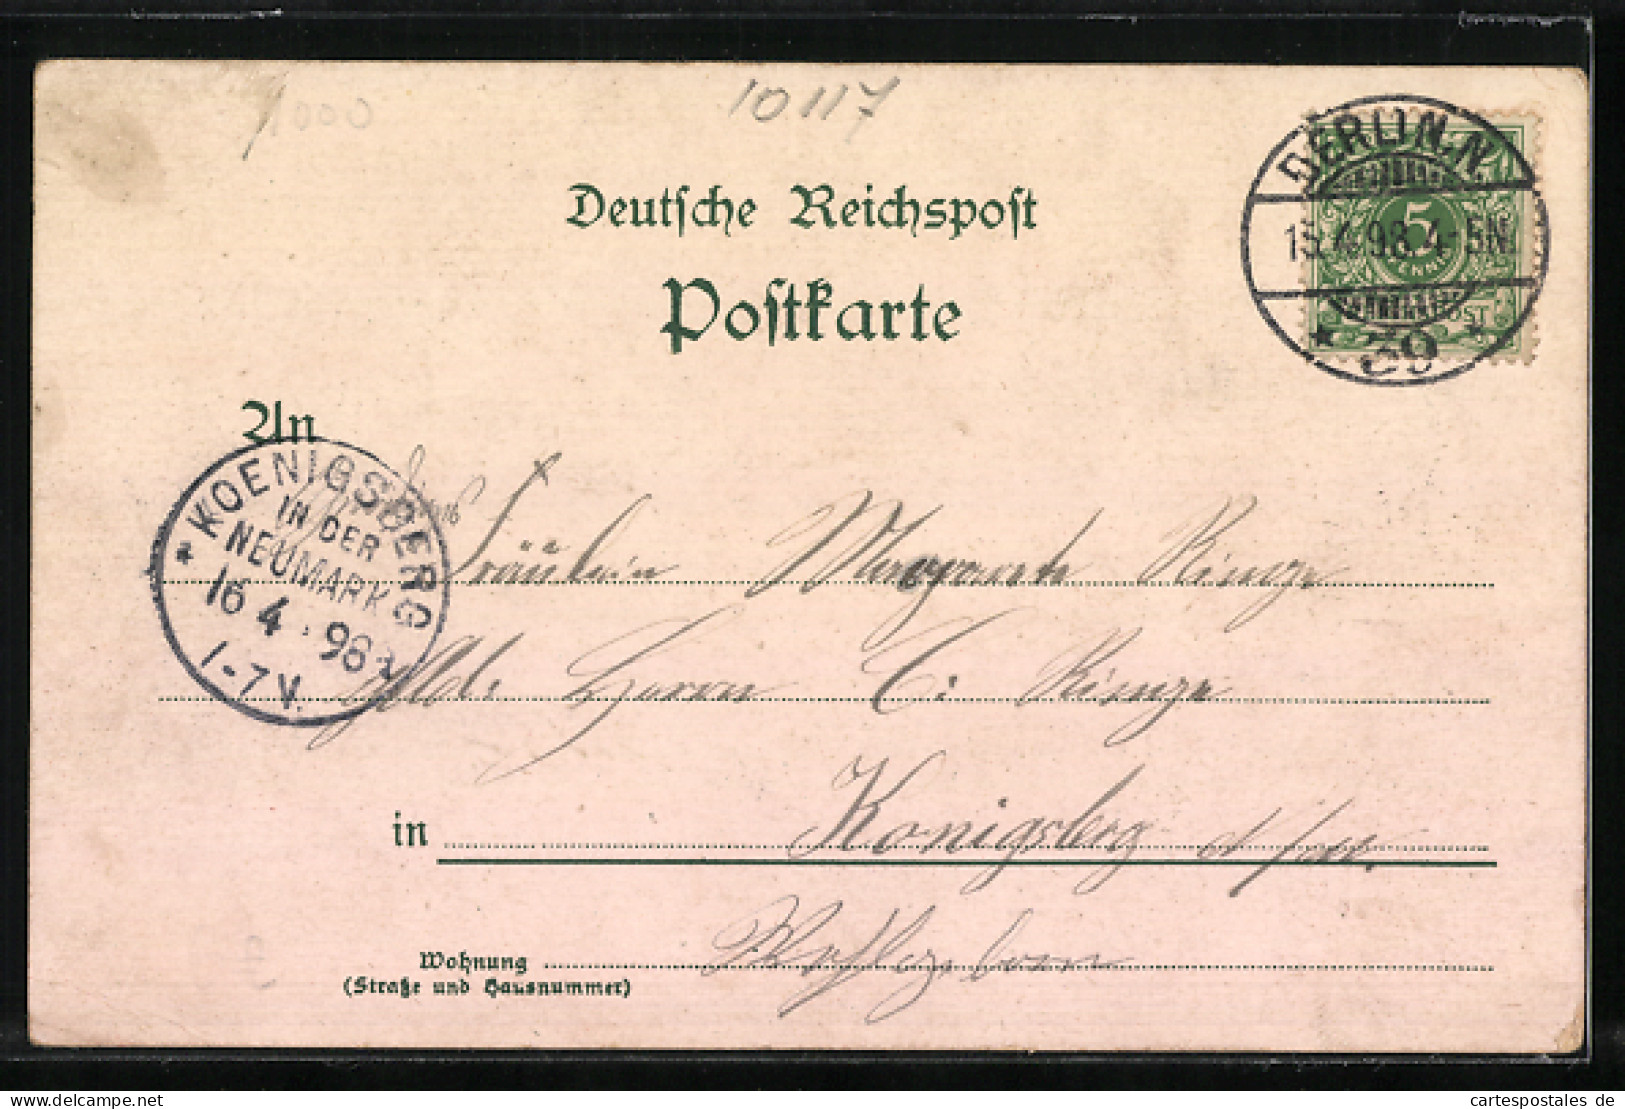 10117
Deutsche Reichspost
Postkarte
BERLIN.N.
15.4.98.4-5N.
* 39 *
5
PFENNIG
An
KOENIGSBERG
IN DER
NEUMARK
16 4.98
1-7V.
Fräulein Margarete Kinze
Adr: Herrn C: Kinze
in Königsberg d/M.
Wohnung
(Straße und Hausnummer)
cartespostales de